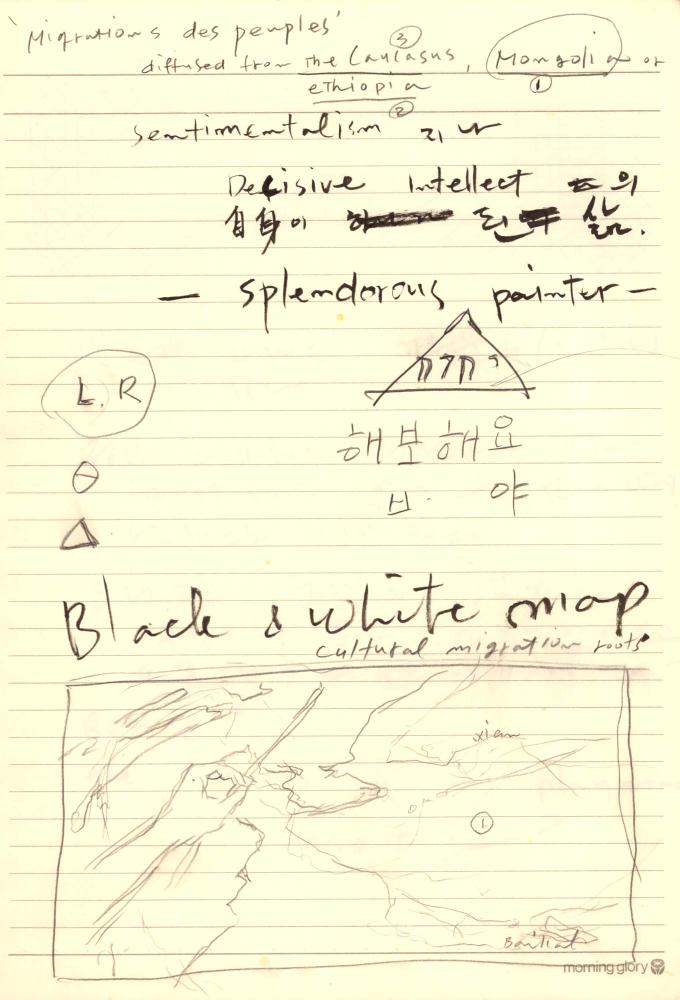 'Migrations des peuples'
③
diffused from The Caucasus, Mongolia or
ethiopia ①
②
sentimentalism 지나
Decisive Intellect 의
自身이 된 삶.
— splendorous painter —
L. R
해보해요
ㅂ. 야
Black & white map
cultural migration roots
xian
①
morning glory